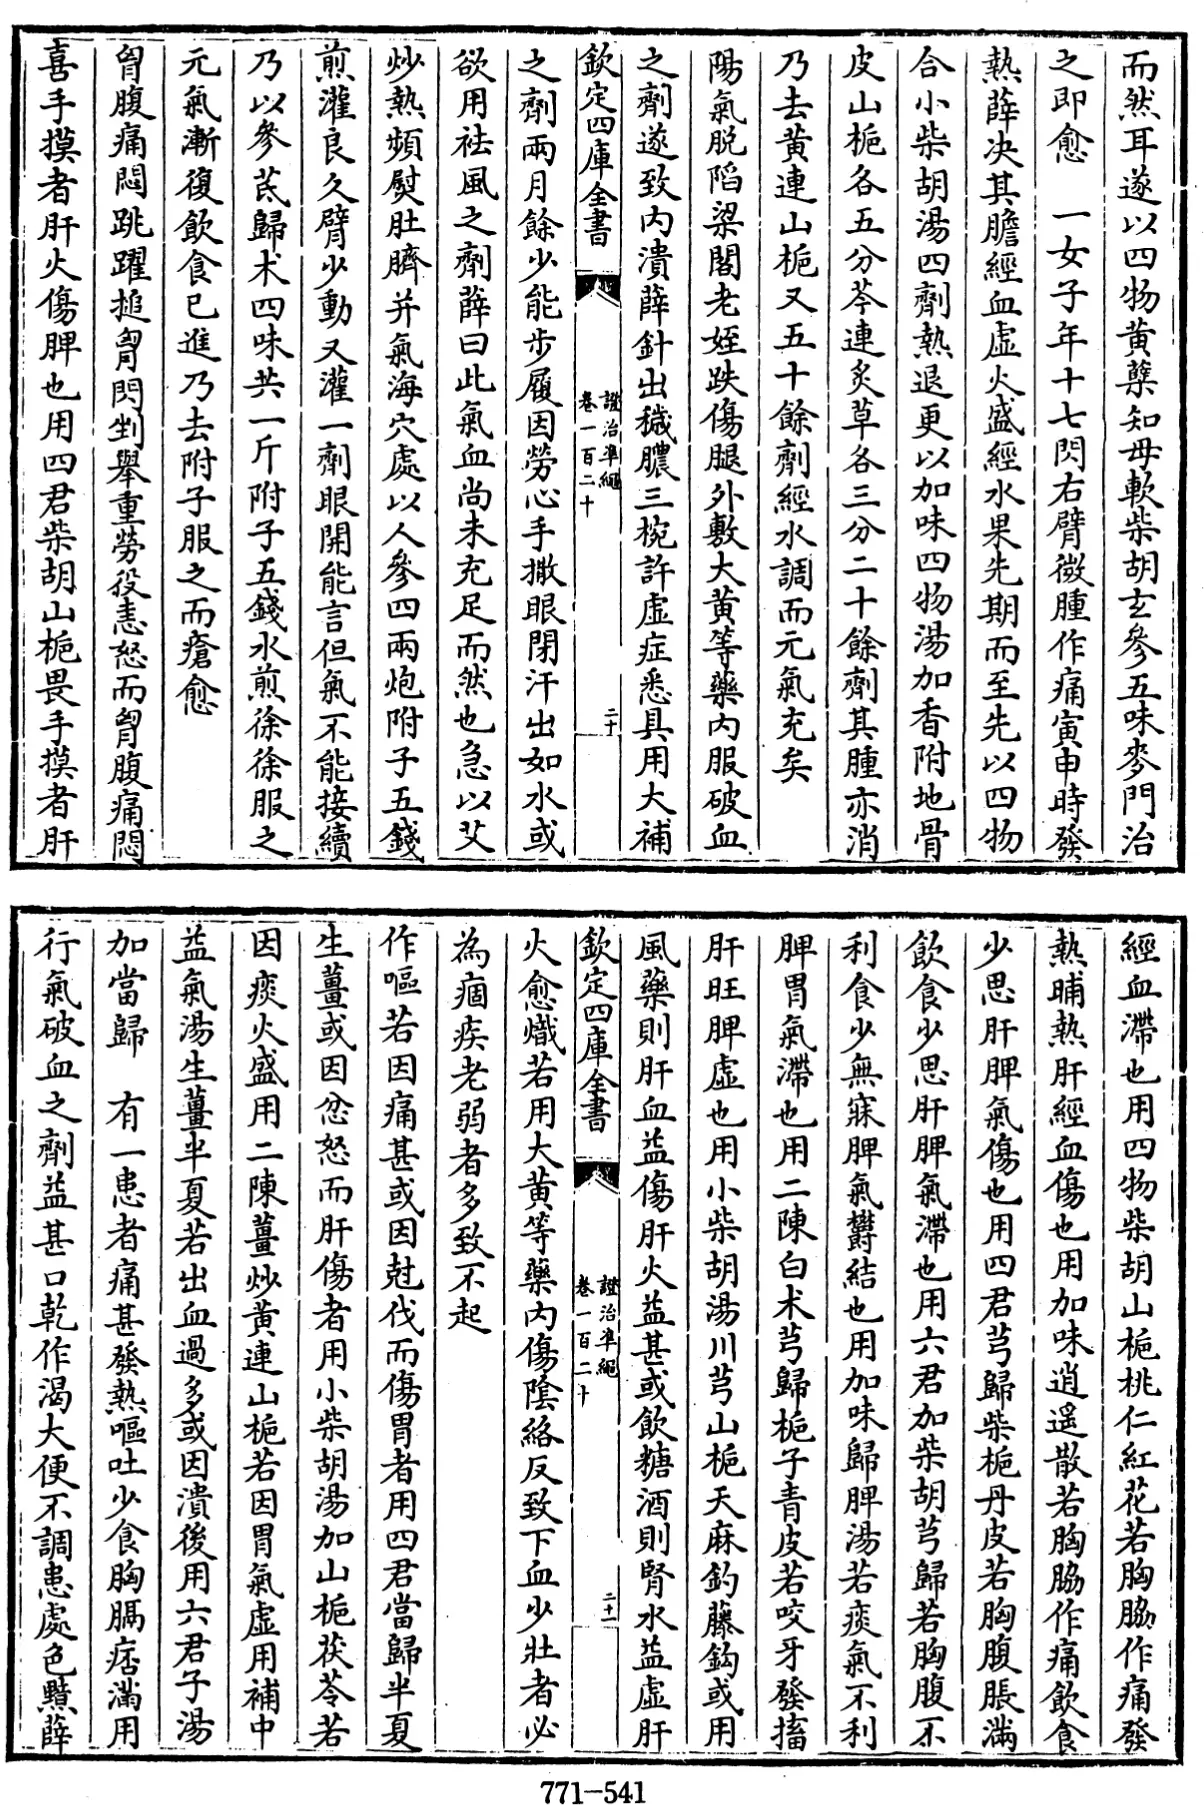 而然耳遂以四物黄蘗知母軟柴胡玄參五味麥門治
之即愈　一女子年十七閃右臂微腫作痛寅申時發
熱薛决其膽經血虚火盛經水果先期而至先以四物
合小柴胡湯四劑熱退更以加味四物湯加香附地骨
皮山梔各五分芩連炙草各三分二十餘劑其腫亦消
乃去黄連山梔又五十餘劑經水調而元氣充矣
陽氣脱陷梁閣老姪跌傷腿外敷大黄等藥内服破血
之劑遂致内潰薛針出穢膿三椀許虚症悉具用大補
欽定四庫全書
證治準繩
卷一百二十
二十
之劑兩月餘少能步履因勞心手撒眼閉汗出如水或
欲用祛風之劑薛曰此氣血尚未充足而然也急以艾
炒熱頻熨肚臍并氣海穴處以人參四兩炮附子五錢
煎灌良久臂少動又灌一劑眼開能言但氣不能接續
乃以參芪歸术四味共一斤附子五錢水煎徐徐服之
元氣漸復飲食已進乃去附子服之而瘡愈
胷腹痛悶跳躍搥胷閃剉舉重勞役恚怒而胷腹痛悶
喜手摸者肝火傷脾也用四君柴胡山梔畏手摸者肝
經血滯也用四物柴胡山梔桃仁紅花若胸脇作痛發
熱晡熱肝經血傷也用加味逍遥散若胸脇作痛飲食
少思肝脾氣傷也用四君芎歸柴梔丹皮若胸腹脹滿
飲食少思肝脾氣滯也用六君加柴胡芎歸若胸腹不
利食少無寐脾氣鬱結也用加味歸脾湯若痰氣不利
脾胃氣滯也用二陳白术芎歸梔子青皮若咬牙發搐
肝旺脾虚也用小柴胡湯川芎山梔天麻釣藤鈎或用
風藥則肝血益傷肝火益甚或飲糖酒則腎水益虚肝
欽定四庫全書
證治準繩
卷一百二十
二十一
火愈熾若用大黄等藥内傷隂絡反致下血少壯者必
為痼疾老弱者多致不起
作嘔若因痛甚或因尅伐而傷胃者用四君當歸半夏
生薑或因忿怒而肝傷者用小柴胡湯加山梔茯苓若
因痰火盛用二陳薑炒黄連山梔若因胃氣虚用補中
益氣湯生薑半夏若出血過多或因潰後用六君子湯
加當歸　有一患者痛甚發熱嘔吐少食胸膈痞滿用
行氣破血之劑益甚口乾作渴大便不調患處色黯薛
771—541